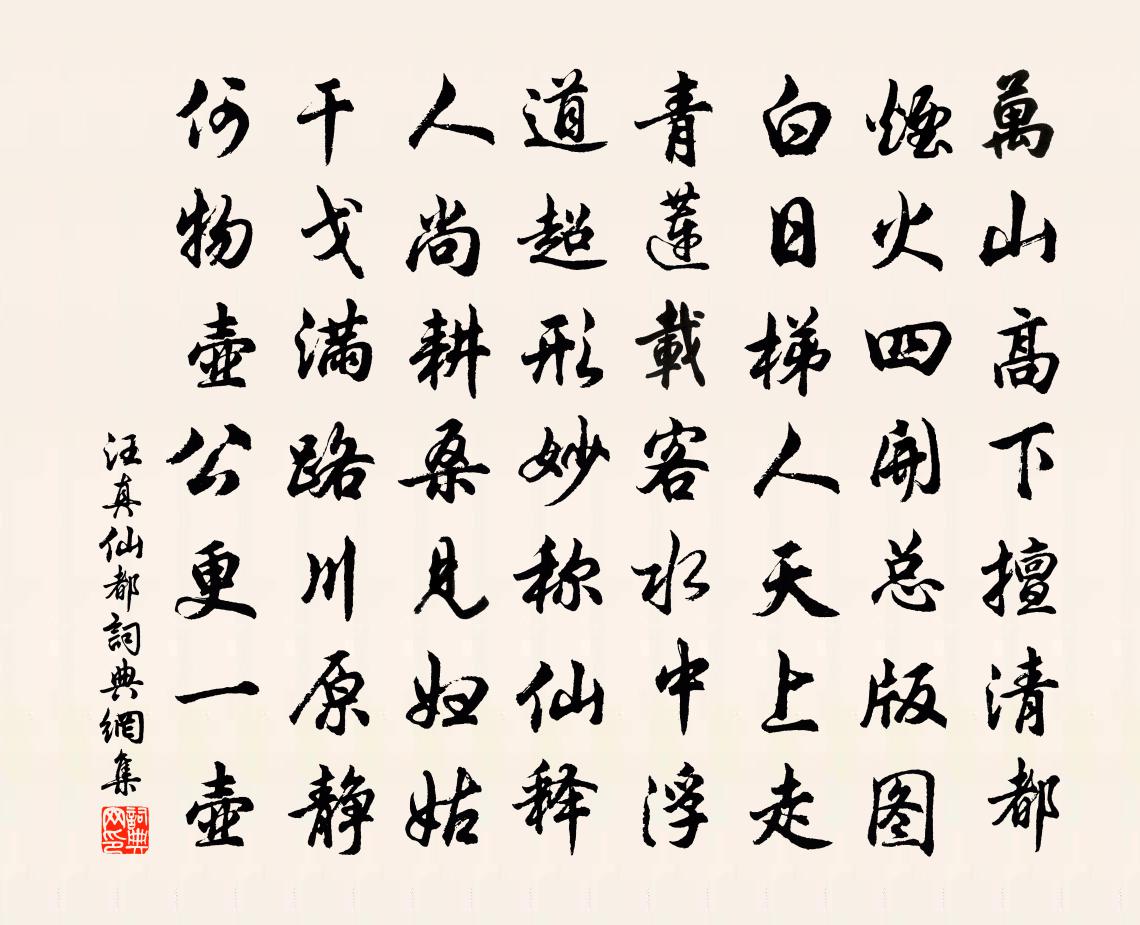 萬山高下擅清都
煙火四開总版图
白日梯人天上走
青蓮載客水中浮
道超形妙称仙释
人尚耕桑見妇姑
干戈滿路川原静
何物壺公更一壺
汪真仙都詞典網集
詞典网印